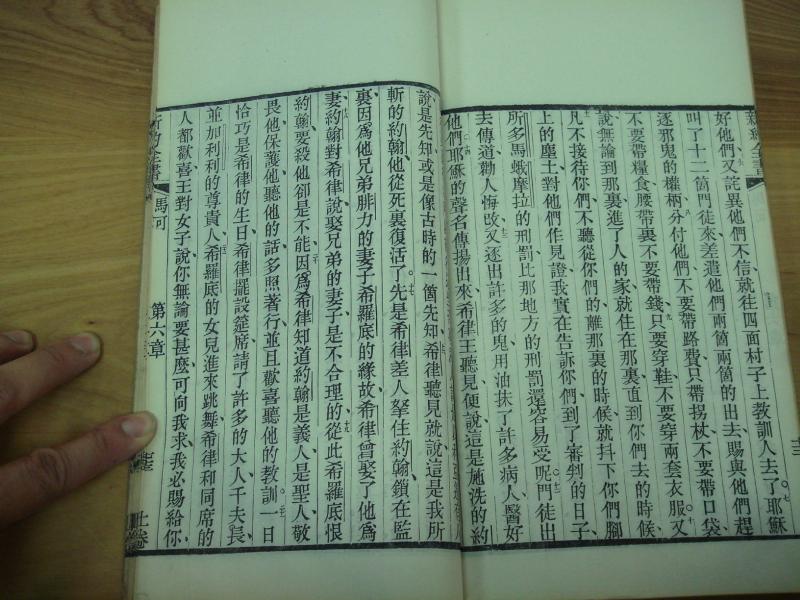 新約全書
好他們、又詫異他們不信、就往四面村子上教訓人去了。七耶穌
叫了十二箇門徒來、差遣他們兩箇兩箇的出去、賜與他們趕
逐邪鬼的權柄、八分付他們不要帶路費、只帶拐杖、不要帶口袋、
不要帶糧食、腰帶裏不要帶錢、九只要穿鞋、不要穿兩套衣服。十又
說、無論到那裏、進了人的家、就住在那裏、直到你們去的時候、
凡不接待你們、不聽從你們的、離那裏的時候、就抖下你們腳
上的塵土、對他們作見證、我實在告訴你們、到了審判的日子、
所多馬蛾摩拉的刑罰、比那地方的刑罰還容易受呢。門徒出
去傳道、勸人悔改、又逐出許多的鬼、用油抹了許多病人、醫好
他們、耶穌的聲名傳揚出來、希律王聽見、便說、這是施洗的約
說是先知、或是像古時的一箇先知、希律聽見就說、這是我所
斬的約翰、他從死裏復活了。先是希律差人拏住約翰、鎖在監
裏、因為他兄弟腓力的妻子希羅底的緣故、希律曾娶了他為
妻、約翰對希律說、娶兄弟的妻子、是不合理的、從此希羅底恨
約翰、要殺他、卻是不能、因為希律知道約翰是義人、是聖人、敬
畏他、保護他、聽他的話、多照著行、並且歡喜聽他的教訓。一日
恰巧是希律的生日、希律擺設筵席、請了許多的大人、千夫長、
並加利利的尊貴人、希羅底的女兒進來跳舞、希律和同席的
人都歡喜、王對女子說、你無論要甚麼、可向我求、我必賜給你、
新約全書 馬可 第六章 上卷